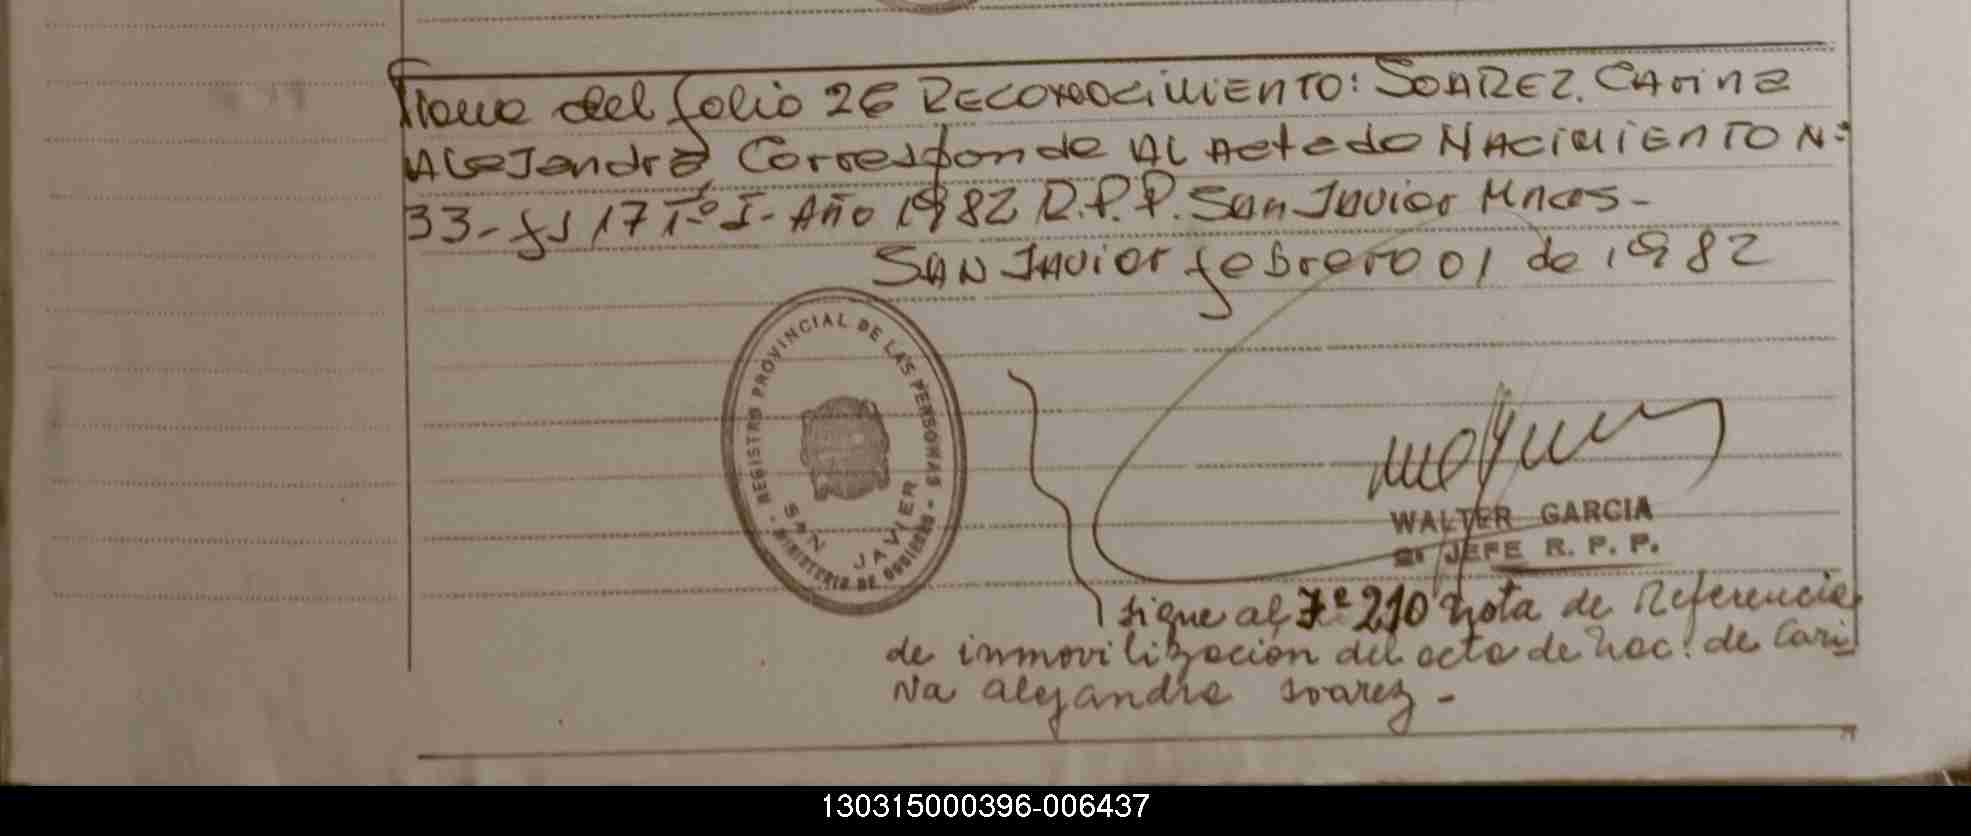 Viene del folio 26 RECONOCIMIENTO: SOAREZ. CArina
ALeJandra Corresponde AL Acta de NACIMIENTO Nº
33- fs 17 Tº I- Año 1982 R.P.P. San Javier Mnes-
SAN JAvier febrero 01 de 1982
REGISTRO PROVINCIAL DE LAS PERSONAS
SAN JAVIER
MINISTERIO DE GOBIERNO
WALTER GARCIA
JEFE R. P. P.
sigue al Fº 210 nota de Referencia
de inmovilización del acta de nac. de Cari
na alejandra soarez -
130315000396-006437